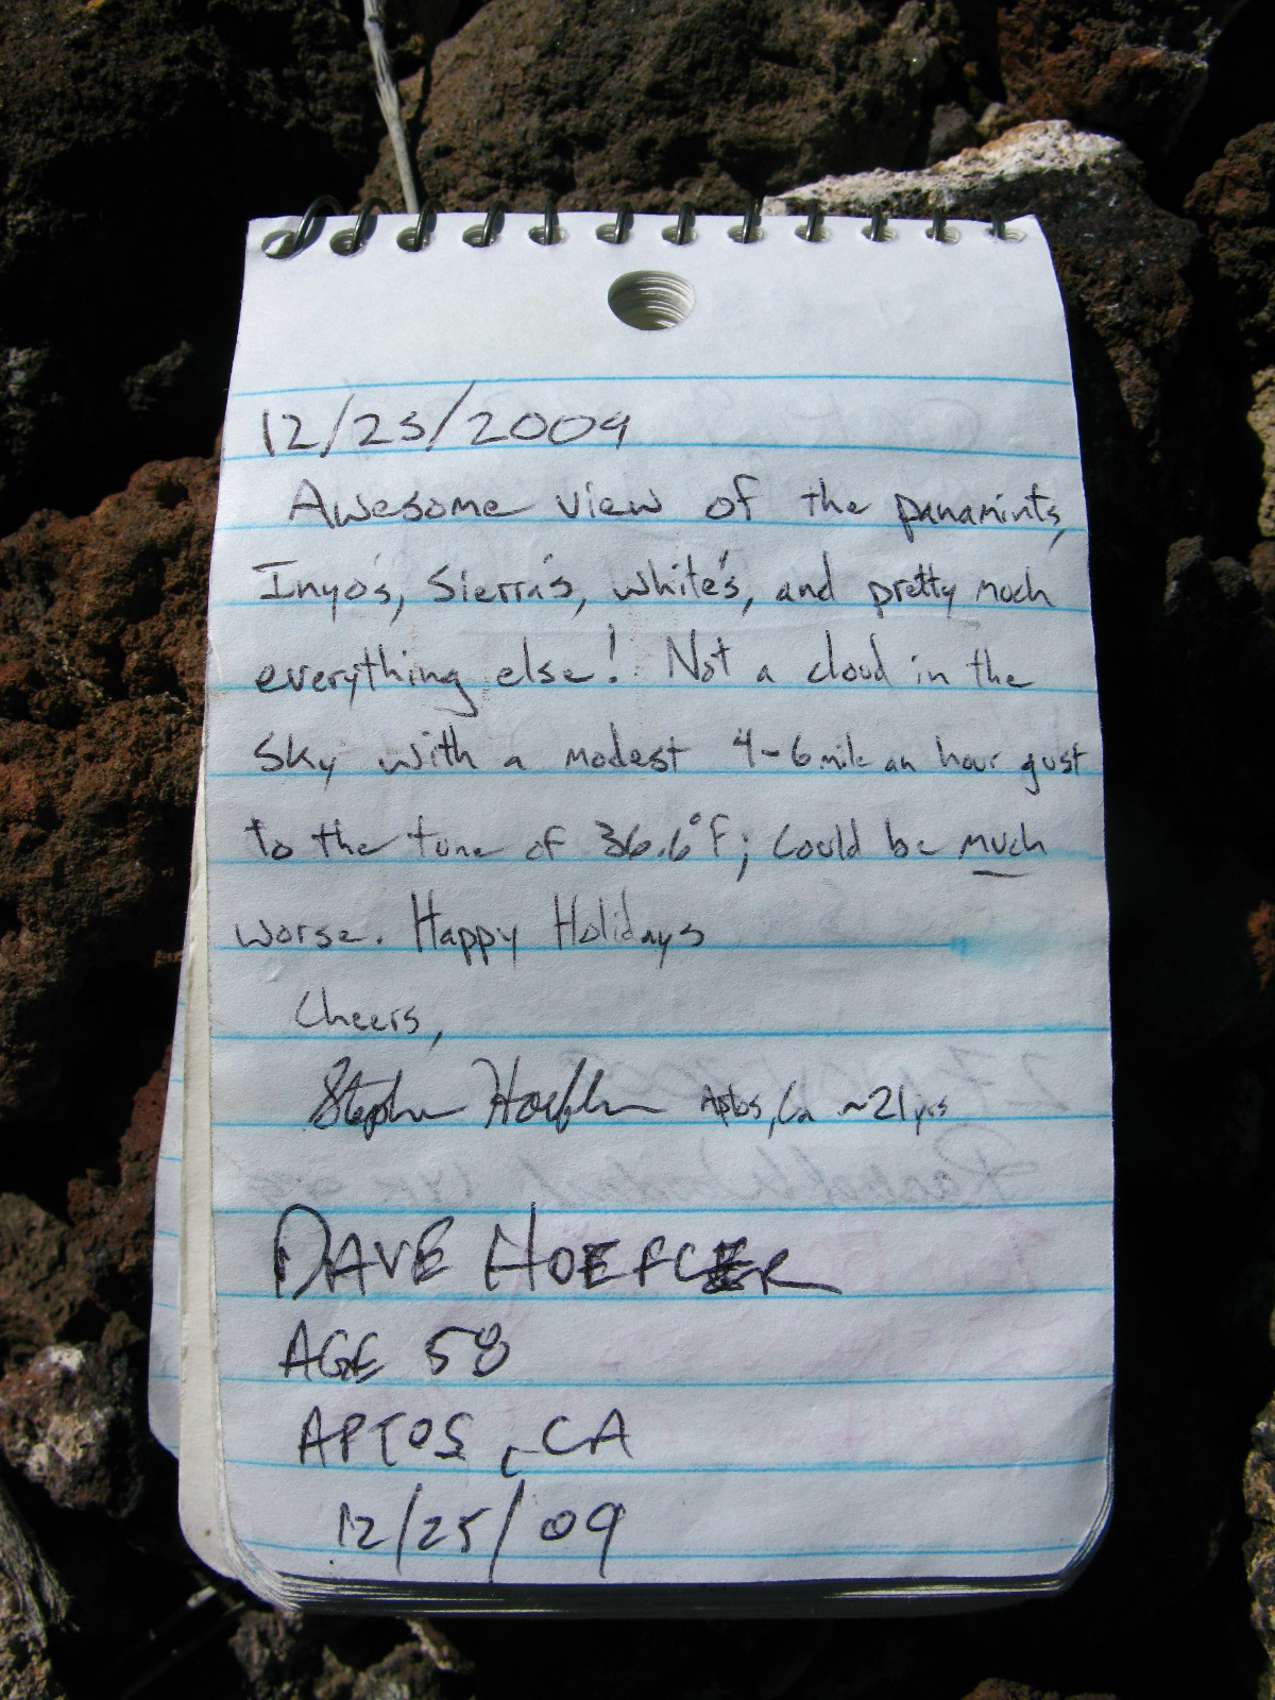 12/25/2009
Awesome view of the panamints,
Inyo's, Sierra's, White's, and pretty much
everything else! Not a cloud in the
sky with a modest 4-6 mile an hour gust
to the tune of 36.6°F; Could be much
worse. Happy Holidays
Cheers,
Stephen Hoefler Aptos, Ca ~21 yrs
DAVE HOEFLER
AGE 58
APTOS, CA
12/25/09